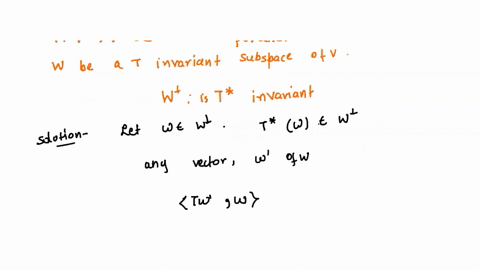 W be a T invariant subspace of V.
W⊥ : is T* invariant
Solution- Let w ∈ W⊥. T*(w) ∈ W⊥
any vector, w' of W
⟨Tw' , w⟩